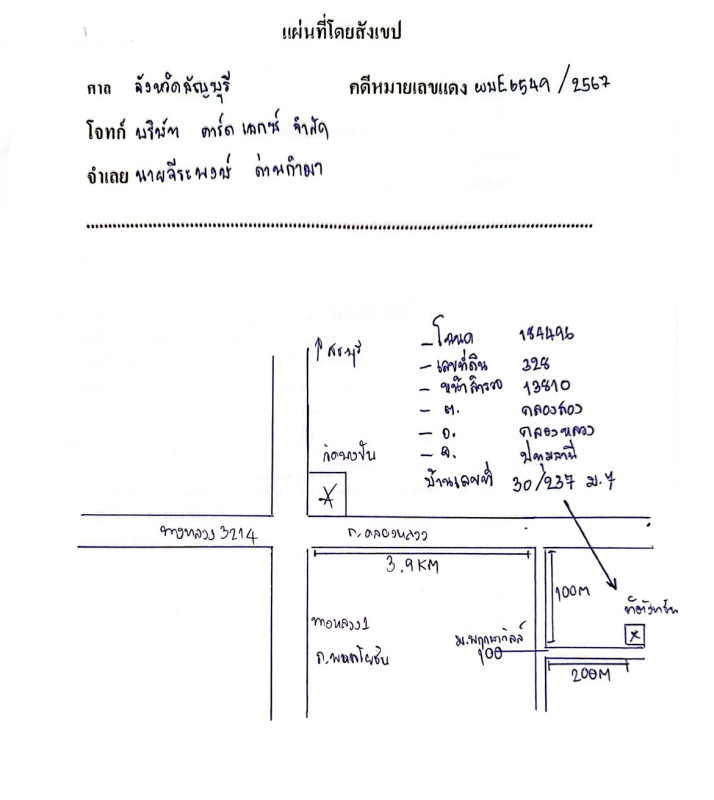 แผ่นที่โดยสังเขป
ศาล จังหวัดธัญบุรี คดีหมายเลขแดง ผบE6549/2567
โจทก์ บริษัท คาร์ด เอกซ์ จำกัด
จำเลย นายจีระพงษ์ ด่านกำมา
↑ สระบุรี
- โฉนด 184496
- เลขที่ดิน 328
- หน้าสำรวจ 13810
- ต. คลองสอง
- อ. คลองหลวง
- จ. ปทุมธานี
บ้านเลขที่ 30/237 ม.7
ทางหลวง 3214
ถ.คลองหลวง
3.9KM
100M
ที่ตั้งทรัพย์
ทางหลวง1
ถ.พหลโยธิน
ม.พฤกษาวิลล์
100
200M